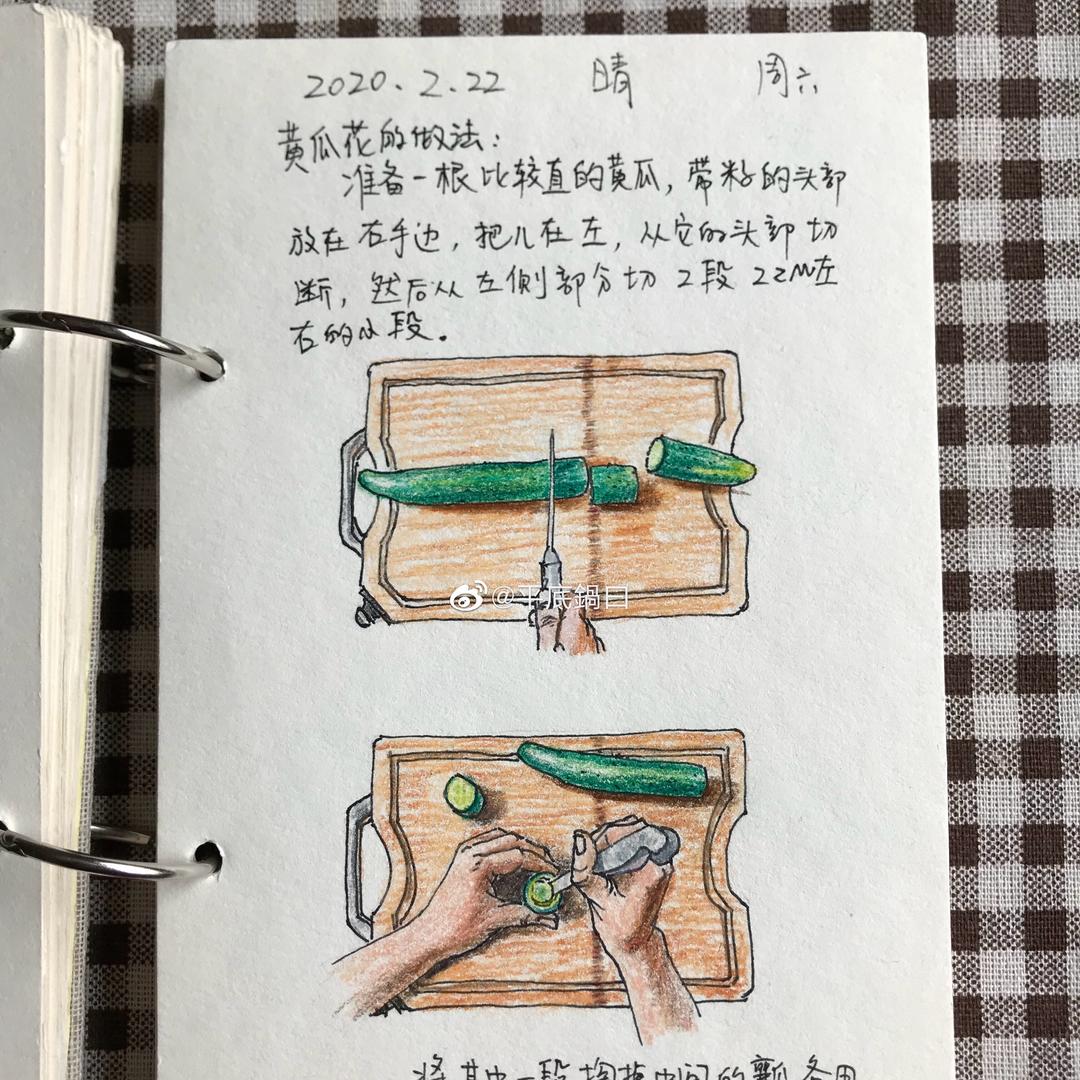 2020.2.22 晴 周六
黄瓜花的做法:
准备一根比较直的黄瓜,带籽的头部
放在右手边,把儿在左,从它的头部切
断,然后从左侧部分切2段2cm左
右的小段。
@平底鍋曰
将其中一段掏掉中间的瓤备用